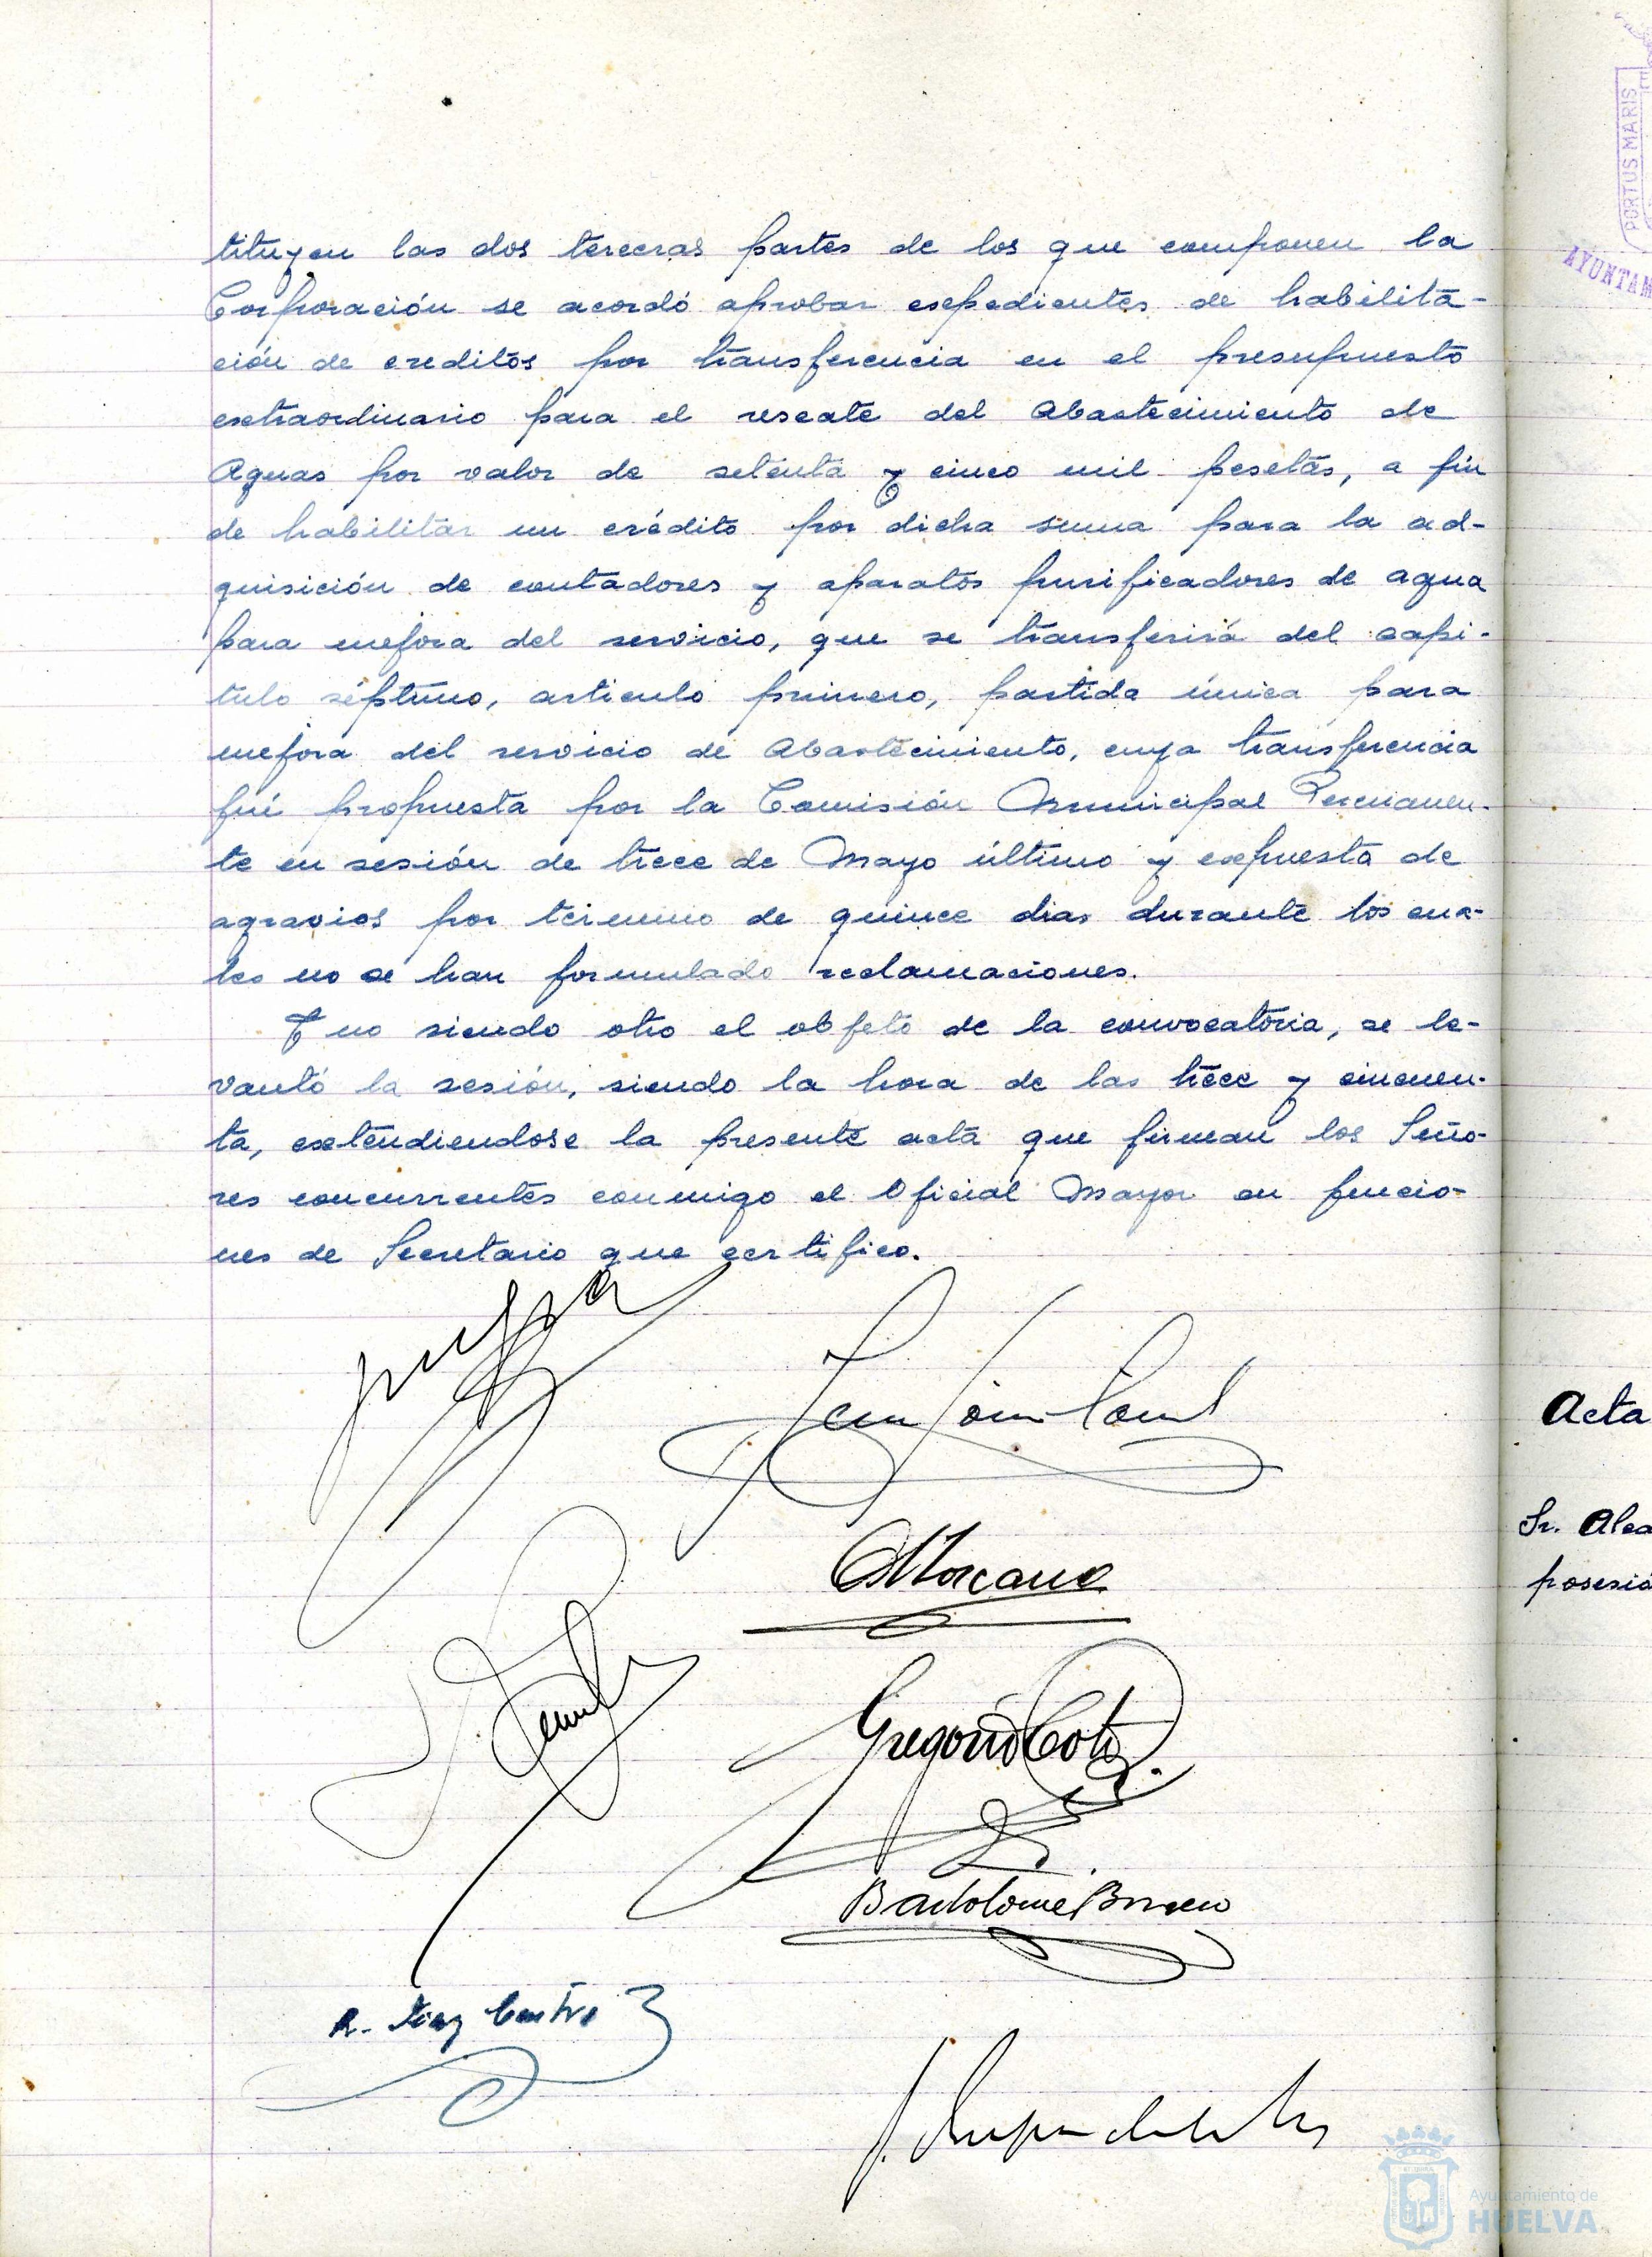 tituyen las dos terceras partes de los que componen la
Corporación se acordó aprobar expedientes de habilita-
ción de creditos por transferencia en el presupuesto
extraordinario para el rescate del Abastecimiento de
Aguas por valor de setenta y cinco mil pesetas, a fin
de habilitar un crédito por dicha suma para la ad-
quisición de contadores y aparatos purificadores de agua
para mejora del servicio, que se transferirá del capi-
tulo séptimo, articulo primero, partida única para
mejora del servicio de Abastecimiento, cuya transferencia
fué propuesta por la Comisión Municipal Permanen-
te en sesión de trece de Mayo último y expuesta de
agravios por término de quince dias durante los cua-
les no se han formulado reclamaciones.
Y no siendo otro el objeto de la convocatoria, se le-
vantó la sesión, siendo la hora de las trece y cincuen-
ta, extendiendose la presente acta que firman los Seño-
res concurrentes conmigo el Oficial Mayor en funcio-
nes de Secretario que certifico.
Gregorio Coto
Bartolomé
R. Diaz Castro
PORTUS MARIS
AYUNTAM
Acta
Sr. Alca
posesió
Ayuntamiento de
HUELVA